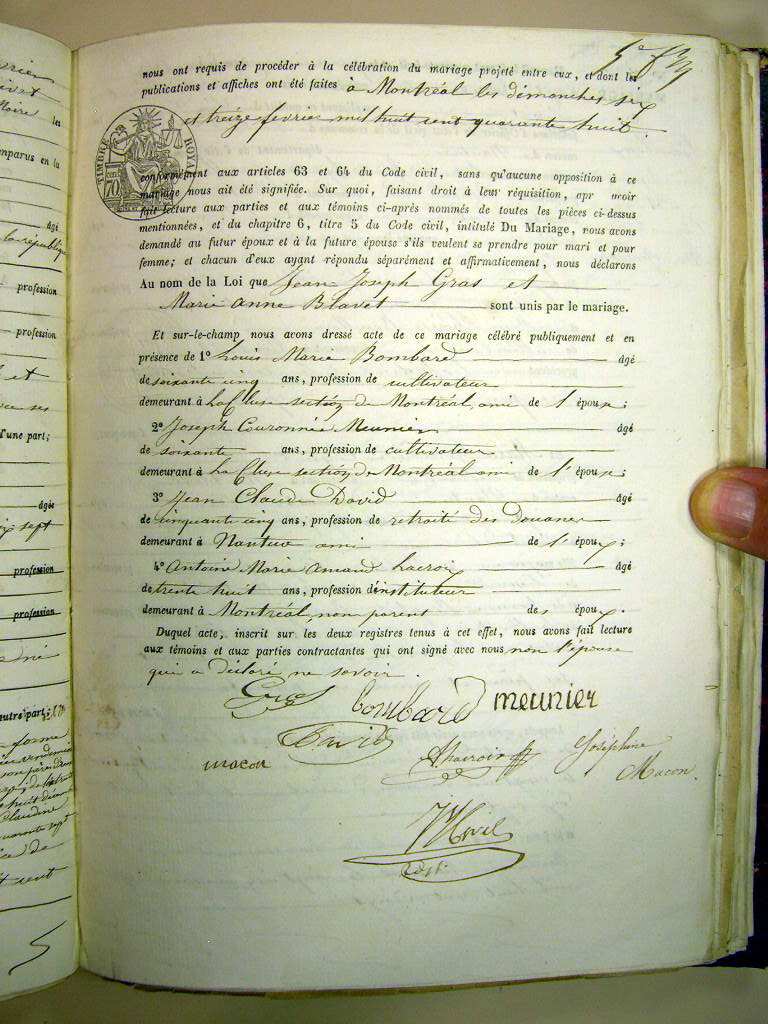 nous ont requis de procéder à la célébration du mariage projeté entre eux, et dont les
publications et affiches ont été faites à Montréal les dimanches six
et treize fevrier mil huit cent quarante huit.
TIMBRE ROYAL
70
conformément aux articles 63 et 64 du Code civil, sans qu'aucune opposition à ce
mariage nous ait été signifiée. Sur quoi, faisant droit à leur réquisition, apr avoir
fait lecture aux parties et aux témoins ci-après nommés de toutes les pièces ci-dessus
mentionnées, et du chapitre 6, titre 5 du Code civil, intitulé Du Mariage, nous avons
demandé au futur époux et à la future épouse s'ils veulent se prendre pour mari et pour
femme; et chacun d'eux ayant répondu séparément et affirmativement, nous déclarons
Au nom de la Loi que Jean Joseph Gras et
Marie Anne Blavet sont unis par le mariage.
Et sur-le-champ nous avons dressé acte de ce mariage célébré publiquement et en
présence de 1° Louis Marie Bombard âgé
de soixante cinq ans, profession de cultivateur
demeurant à La Cluse section de Montréal, ami de l'époux;
2° Joseph Couronnée Meunier âgé
de soixante ans, profession de cultivateur
demeurant à La Cluse section de Montréal ami de l'époux;
3° Jean Claude David âgé
de cinquante cinq ans, profession de retraité des Douanes
demeurant à Nantua ami de l'époux;
4° Antoine Marie Amand Lacroix âgé
de trente huit ans, profession d'instituteur
demeurant à Montréal, non parent des époux.
Duquel acte, inscrit sur les deux registres tenus à cet effet, nous avons fait lecture
aux témoins et aux parties contractantes qui ont signé avec nous non l'épouse
qui a déclaré ne savoir.
Gras bombard meunier
David
macon ALacroix Joséphine
Macon